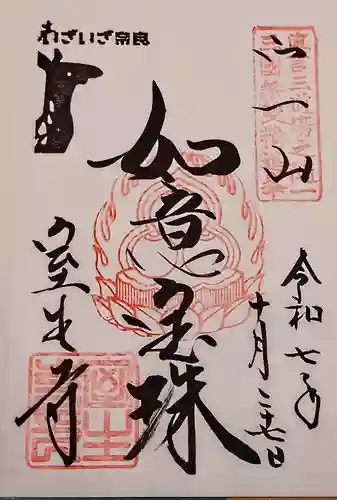 宀一山
令和七年
十月二七日
如意宝珠
室生寺
わざいざ奈良